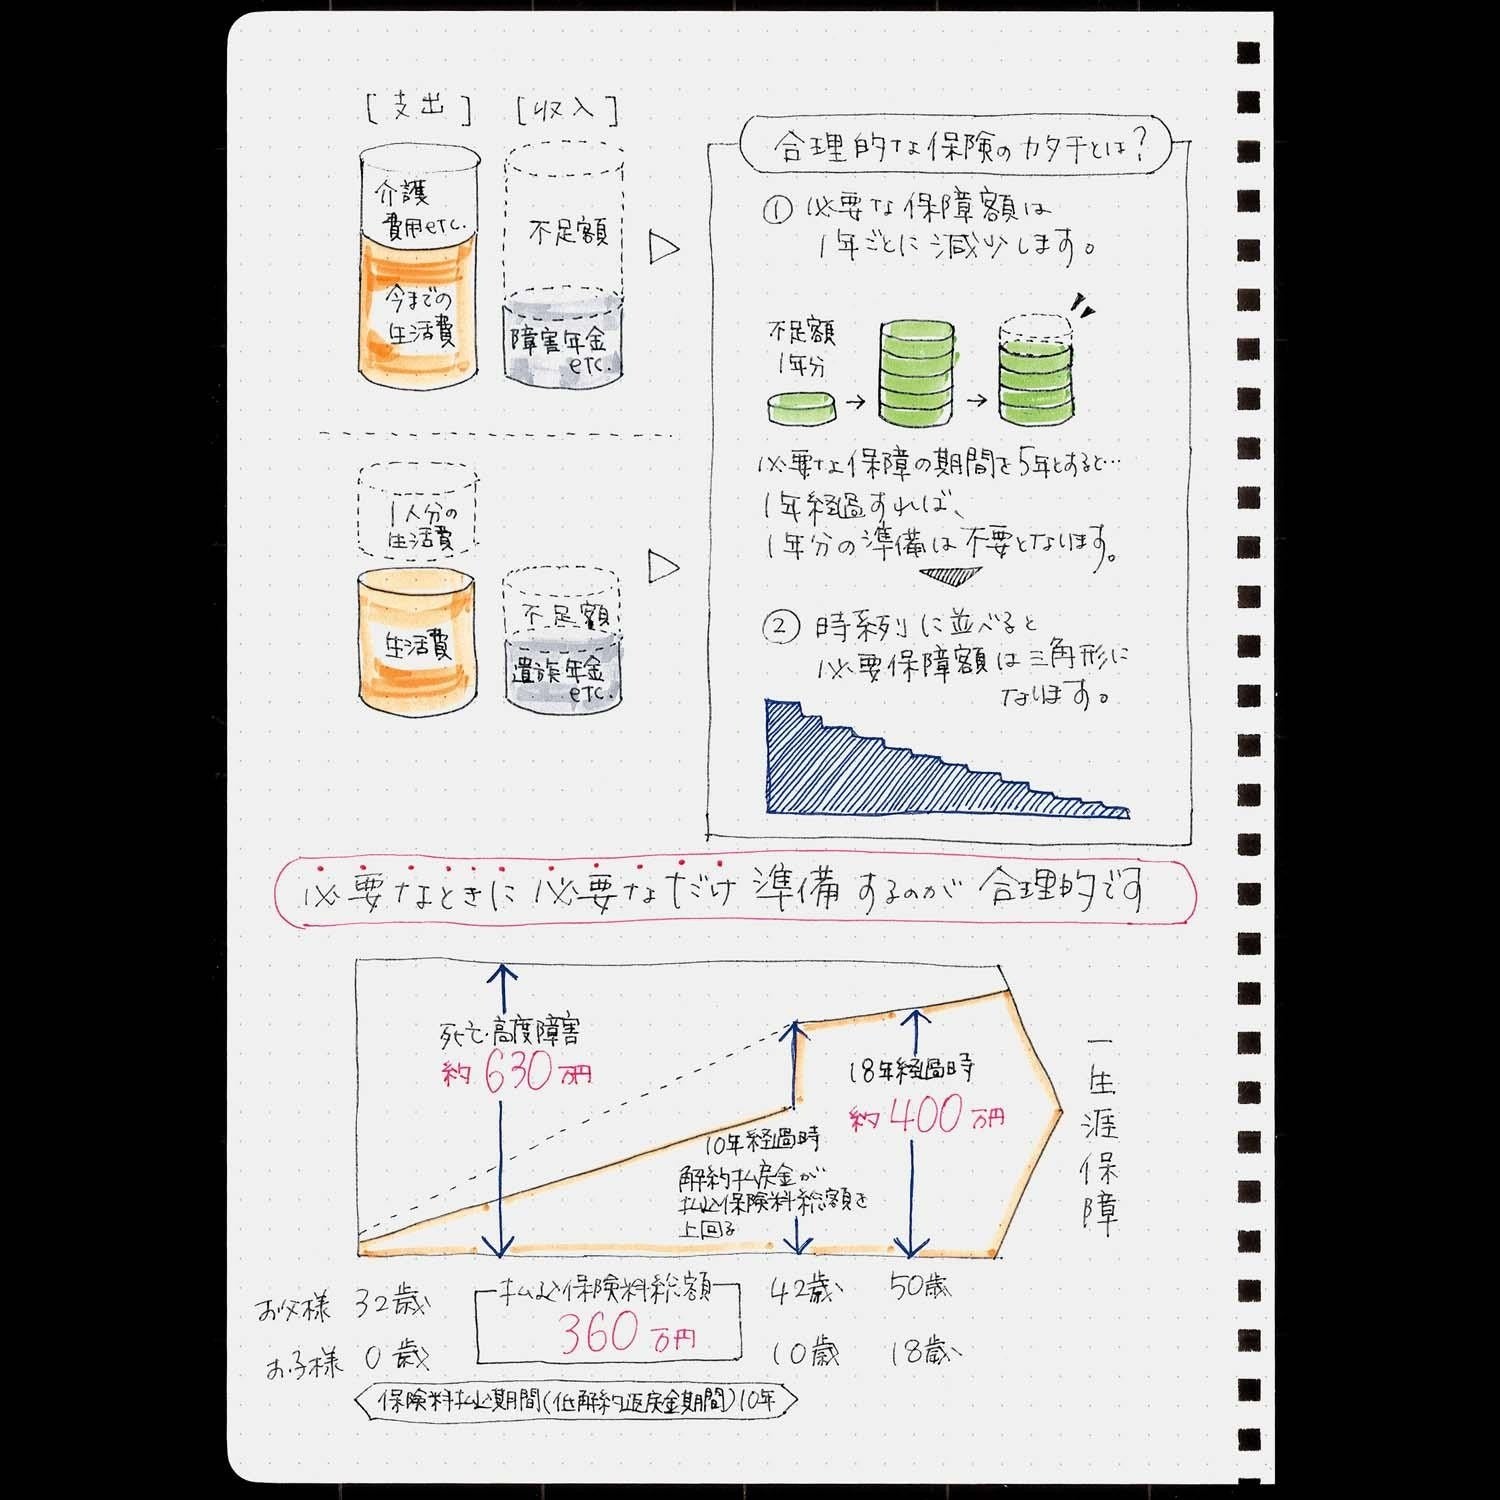 [支出]
[収入]
介護
費用etc.
今までの
生活費
不足額
障害年金
etc.
1人分の
生活費
生活費
不足額
遺族年金
etc.
合理的な保険のカタチとは?
① 必要な保障額は
1年ごとに減少します。
不足額
1年分
必要な保障の期間を5年とすると…
1年経過すれば、
1年分の準備は不要となります。
② 時系列に並べると
必要保障額は三角形に
なります。
必要なときに必要なだけ準備するのが合理的です
死亡・高度障害
約630万円
10年経過時
解約払戻金が
払込保険料総額を
上回る
18年経過時
約400万円
一生涯保障
お父様 32歳
払込保険料総額
360万円
42歳
50歳
お子様 0歳
10歳
18歳
保険料払込期間(低解約返戻金期間)10年